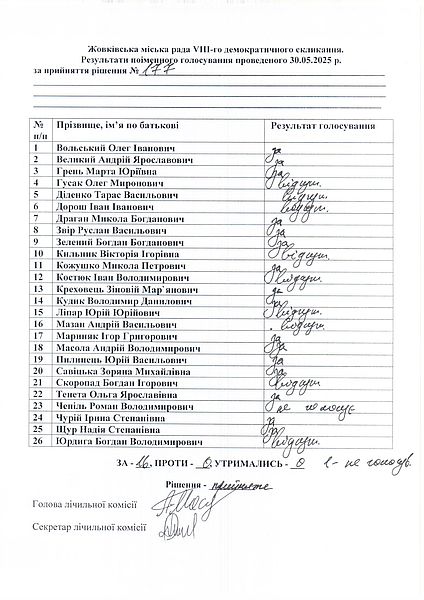 Жовківська міська рада VIII-го демократичного скликання.
Результати поіменного голосування проведеного 30.05.2025 р.
за прийняття рішення № 177
№ п/п Прізвище, ім’я по батькові Результат голосування
1 Вольський Олег Іванович за
2 Великий Андрій Ярославович за
3 Грень Марта Юріївна за
4 Гусак Олег Миронович відсутн.
5 Діденко Тарас Васильович відсутн.
6 Дорош Іван Іванович відсутн.
7 Драган Микола Богданович за
8 Звір Руслан Васильович за
9 Зелений Богдан Богданович за
10 Кильник Вікторія Ігорівна відсутн.
11 Кожушко Микола Петрович за
12 Костюк Іван Володимирович відсутн.
13 Креховець Зіновій Мар`янович за
14 Кудик Володимир Данилович за
15 Ліпар Юрій Юрійович відсутн.
16 Мазан Андрій Васильович відсутн.
17 Мариняк Ігор Григорович за
18 Масола Андрій Володимирович за
19 Пилипець Юрій Васильович за
20 Савіцька Зоряна Михайлівна за
21 Скоропад Богдан Ігорович відсутн.
22 Тенета Ольга Ярославівна за
23 Чепіль Роман Володимирович не голосує
24 Чурій Ірина Степанівна за
25 Щур Надія Степанівна за
26 Юрдига Богдан Володимирович відсутн.
ЗА - 16. ПРОТИ - 0. УТРИМАЛИСЬ - 0 1- не голосув.
Рішення - прийнято
Голова лічильної комісії
Секретар лічильної комісії